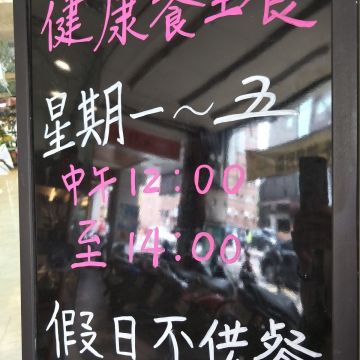 健康餐主食
星期一~五
中午12:00
至14:00
假日不供餐